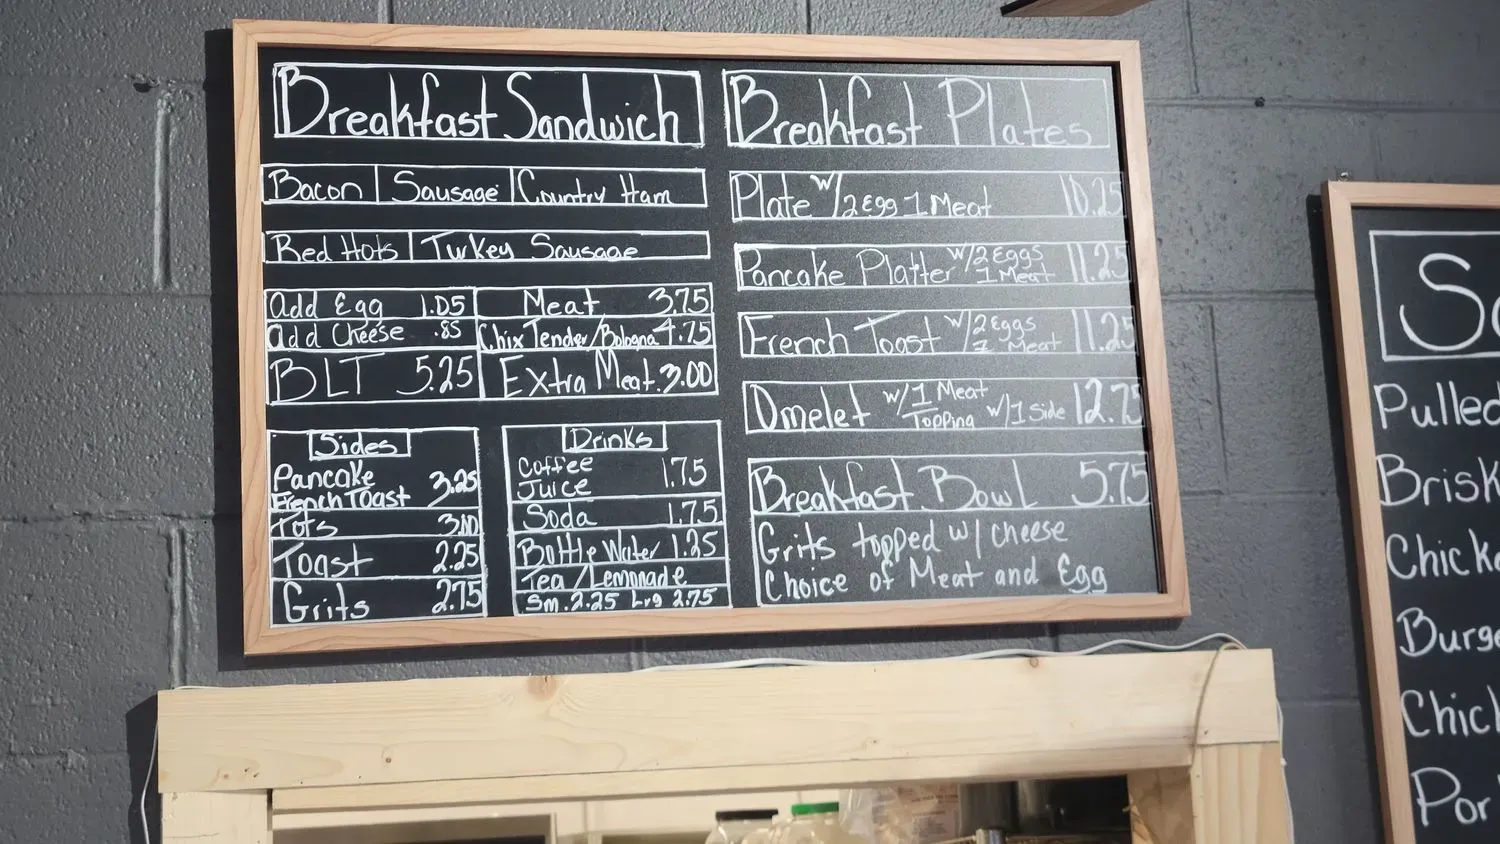 Breakfast Sandwich
Bacon | Sausage | Country Ham
Red Hots | Turkey Sausage
Add Egg 1.05
Add Cheese .85
BLT 5.25
Meat 3.75
Chix Tender/Bologna 4.75
Extra Meat. 3.00
Sides
Pancake
French Toast 3.25
Tots 3.00
Toast 2.25
Grits 2.75
Drinks
Coffee
Juice 1.75
Soda 1.75
Bottle Water 1.25
Tea/Lemonade
Sm. 2.25 Lrg 2.75
Breakfast Plates
Plate w/2 Egg 1 Meat 10.25
Pancake Platter w/2 Eggs 1 Meat 11.25
French Toast w/2 Eggs 1 Meat 11.25
Omelet w/1 Meat Topping w/1 Side 12.75
Breakfast Bowl 5.75
Grits topped w/ cheese
Choice of Meat and Egg
Pulled
Brisk
Chick
Burge
Chick
Por